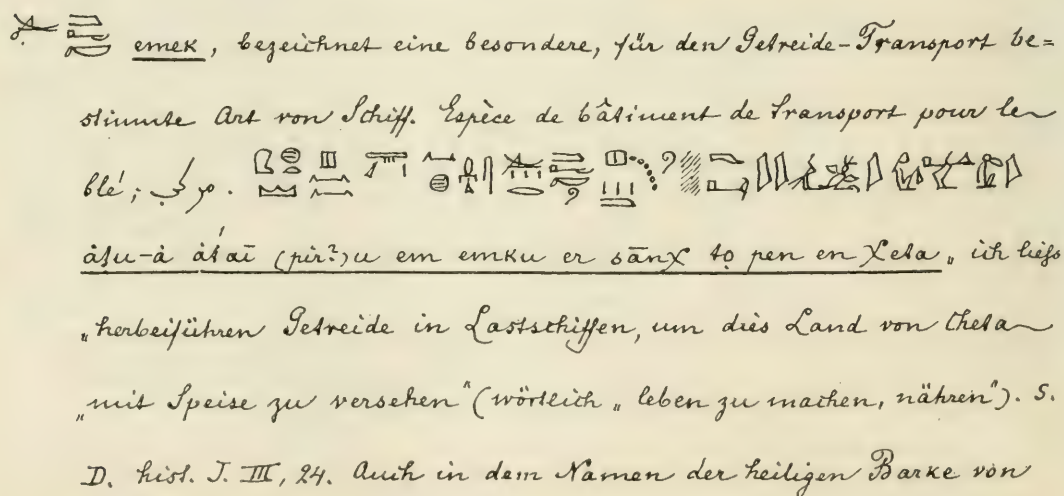 emek, bezeichnet eine besondere, für den Getreide-Transport be=
stimmte Art von Schiff. Espèce de bâtiment de transport pour le
blé; مركب.
àṭu-à àťaī (pir?)u em emku er sānχ to pen en Xeta „ich liefs
„herbeiführen Getreide in Lastschiffen, um dies Land von Cheta
„mit Speise zu versehen“ (wörtlich „leben zu machen, nähren“). S.
D. hist. J. III, 24. Auch in dem Namen der heiligen Barke von